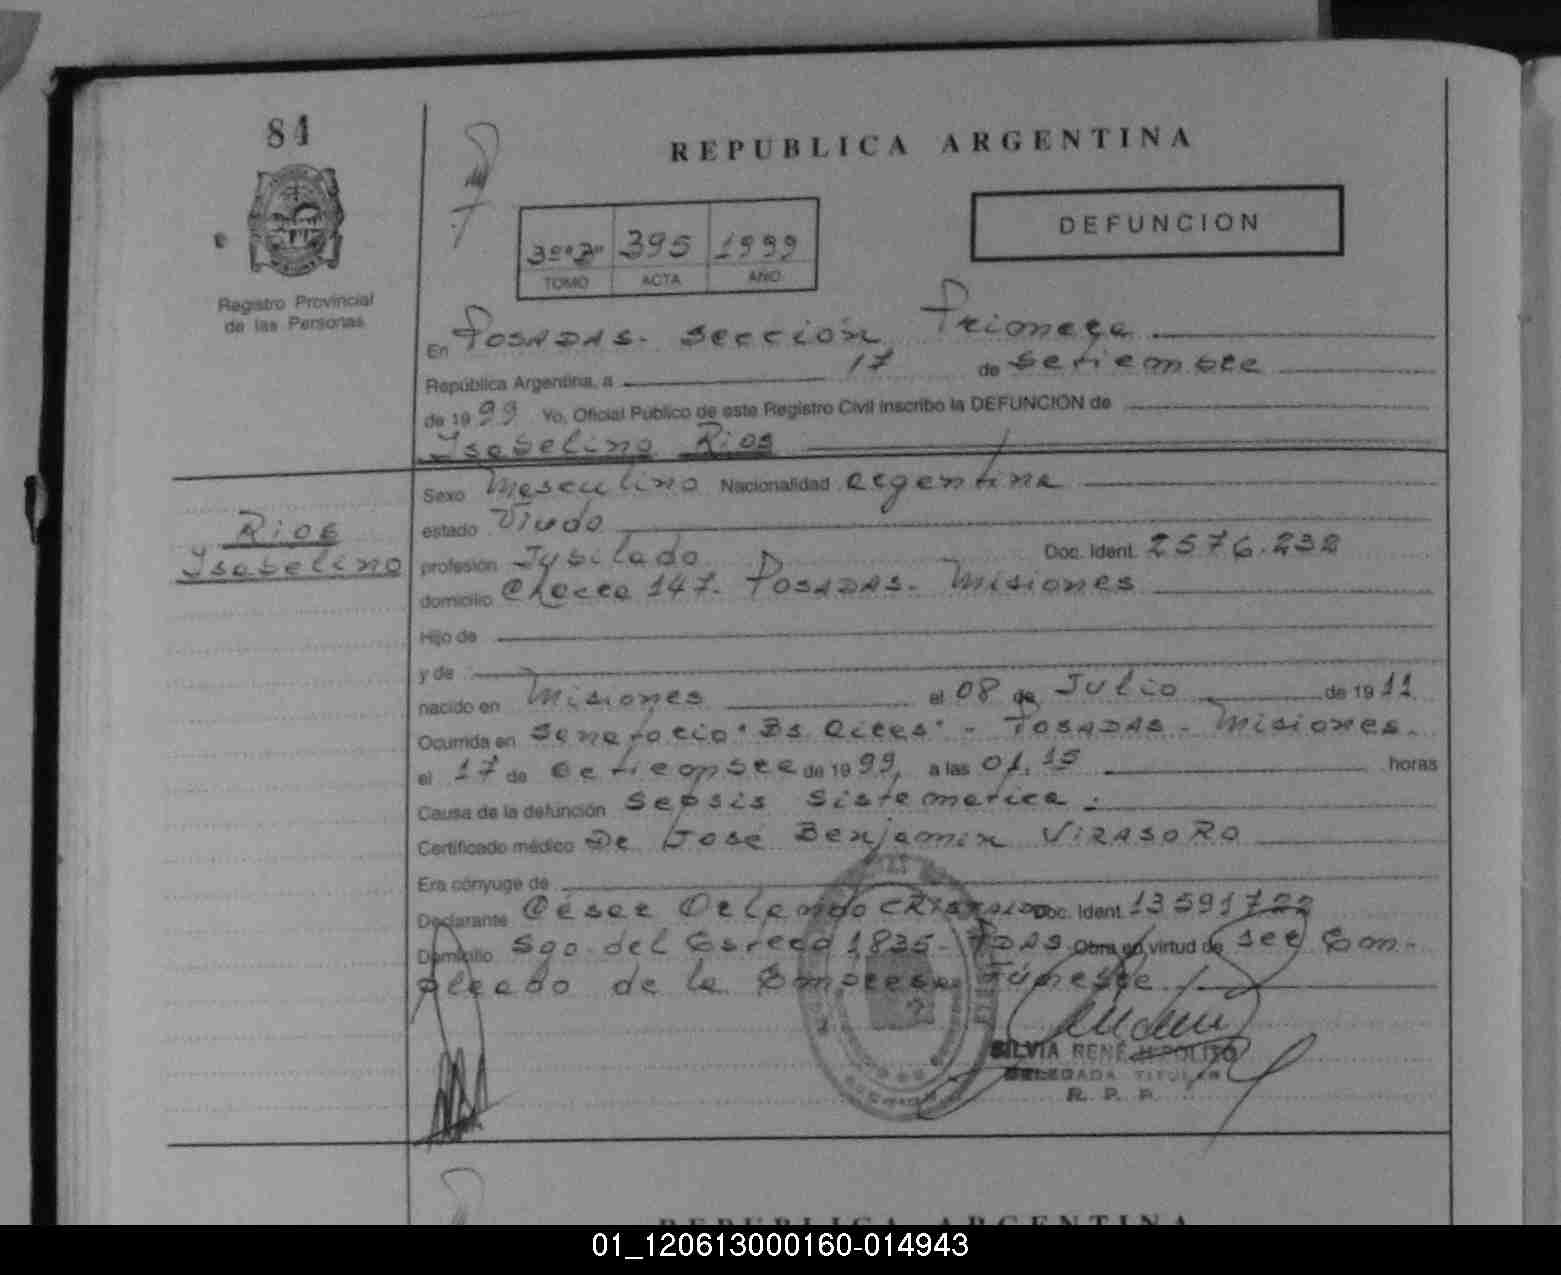 84
REPUBLICA ARGENTINA
395 1999
TOMO ACTA AÑO
DEFUNCION
Registro Provincial
de las Personas
En POSADAS. Sección Primera
República Argentina, a 17 de Setiembre
de 1999 Yo, Oficial Público de este Registro Civil inscribo la DEFUNCION de
Isabelino Rios
Rios
Isabelino
Sexo Masculino Nacionalidad argentina
estado Viudo
profesión Jubilado Doc. Ident. 2576.232
domicilio Chacra 147. POSADAS. Misiones
Hijo de
y de
nacido en Misiones el 08 de Julio de 1911
Ocurrida en Sanatorio "Bs. Aires" - POSADAS - Misiones.
el 17 de Setiembre de 1999, a las 01.15 horas
Causa de la defunción Sepsis Sistematica.
Certificado médico De José Benjamin VIRASORO
Era cónyuge de
Declarante César Orlando Doc. Ident. 13591722
Domicilio Sgo. del Estero 1835 - PDAS Obra en virtud de ser Em-
pleado de la Empresa Fúnebre
SILVIA RENÉ HIPOLITO
DELEGADA TITULAR
R. P. P.
REPUBLICA ARGENTINA
01_120613000160-014943